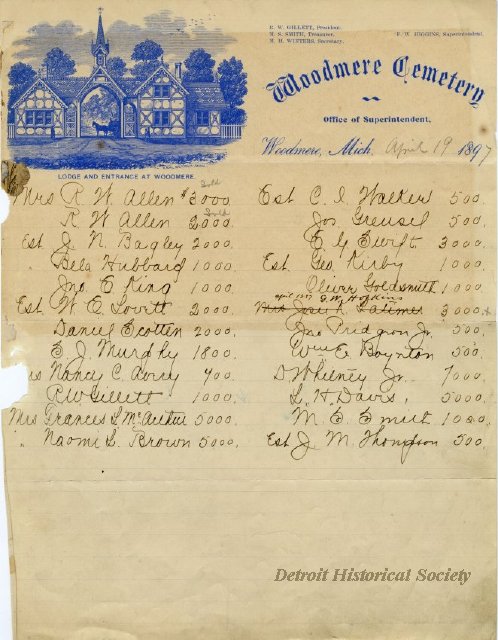 R. W. GILLETT, President.
M. S. SMITH, Treasurer.
H. H. WINTERS, Secretary.
F. W. HIGGINS, Superintendent.
Woodmere Cemetery
Office of Superintendent,
Woodmere, Mich. April 19 1897
LODGE AND ENTRANCE AT WOODMERE.
Sold
Mrs R. W. Allen $3000
Sold
R. W Allen 2000
Est J. N. Bagley 2000.
Bela Hubbard 1000.
Jno E King 1000
Est W. E. Lovett 2000
Daniel Scotten 2000.
E. J. Murphy 1800.
Nancy C. Avery 900.
R W Gillett 1000.
Mrs Frances L McArthur 5000.
" Naomi L. Brown 5000.
Est C. I. Walker 500.
Jos. Greusel 500.
E. Y. Swift. 3000.
Est. Geo. Kirby 1000.
Oliver Goldsmith 1000.
April 1897 Hopkins
Mrs 3000.x
Jno Pridgeon Jr. 500.
Wm E. Boynton 500.
D Whitney Jr. 7000.
L. H. Davis, 5000.
M. E. Smith 1000.
Est J. M. Thompson 500.
Detroit Historical Society